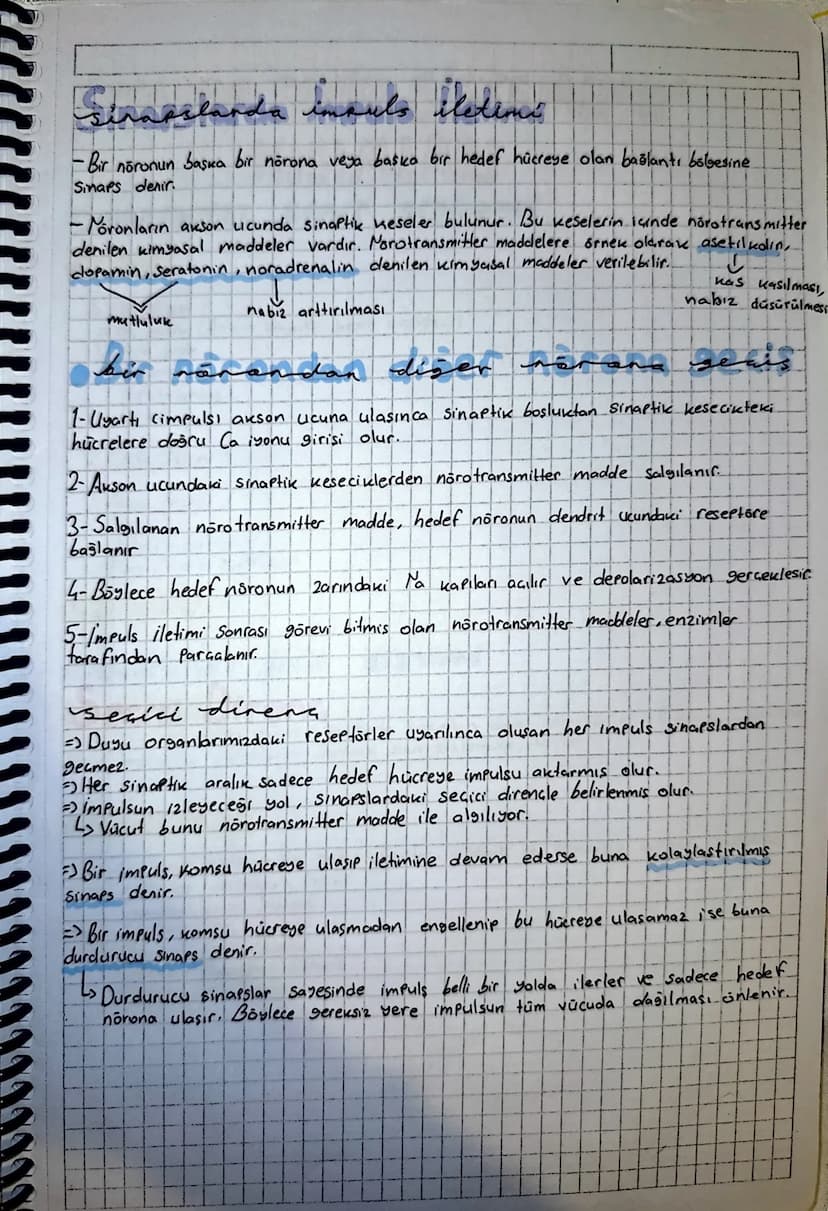 Sinapslarda İmpuls İletimi
- Bir nöronun başka bir nörona veya başka bir hedef hücreye olan bağlantı bölgesine
sinaps denir.
- Nöronların akson ucunda sinaptik keseler bulunur. Bu keselerin içinde nörotransmitter
denilen kimyasal maddeler vardır. Norotransmitler maddelere örnek olarak asetilkolin,
dopamin, seratonin, noradrenalin denilen kimyasal maddeler verilebilir.
mutluluk
nabız arttırılması
kas kasılması,
nabız düşürülmesi
• bir nörondan diğer nörona geçiş
1- Uyartı (impuls) akson ucuna ulaşınca sinaptik boşluktan sinaptik kesecikteki
hücrelere doğru Ca iyonu girişi olur.
2- Akson ucundaki sinaptik keseciklerden nörotransmitter madde salgılanır.
3- Salgılanan nörotransmitter madde, hedef nöronun dendrit ucundaki reseptöre
bağlanır
4- Böylece hedef nöronun zarındaki Na kapıları açılır ve depolarizasyon gerçekleşir.
5- İmpuls iletimi sonrası görevi bitmiş olan nörotransmitter maddeler, enzimler
tarafından parçalanır.
seçici direnç
=> Duyu organlarımızdaki reseptörler uyarılınca oluşan her impuls sinapslardan
geçmez.
=> Her sinaptik aralık sadece hedef hücreye impulsu aktarmış olur.
=> İmpulsun izleyeceği yol, sinapslardaki seçici dirençle belirlenmiş olur.
↳ Vücut bunu nörotransmitter madde ile algılıyor.
=> Bir impuls, komşu hücreye ulaşıp iletimine devam ederse buna kolaylaştırılmış
sinaps denir.
=> Bir impuls, komşu hücreye ulaşmadan engellenip bu hücreye ulaşamaz ise buna
durdurucu sinaps denir.
↳ Durdurucu sinapslar sayesinde impuls belli bir yolda ilerler ve sadece hedef
nörona ulaşır. Böylece gereksiz yere impulsun tüm vücuda dağılması önlenir.